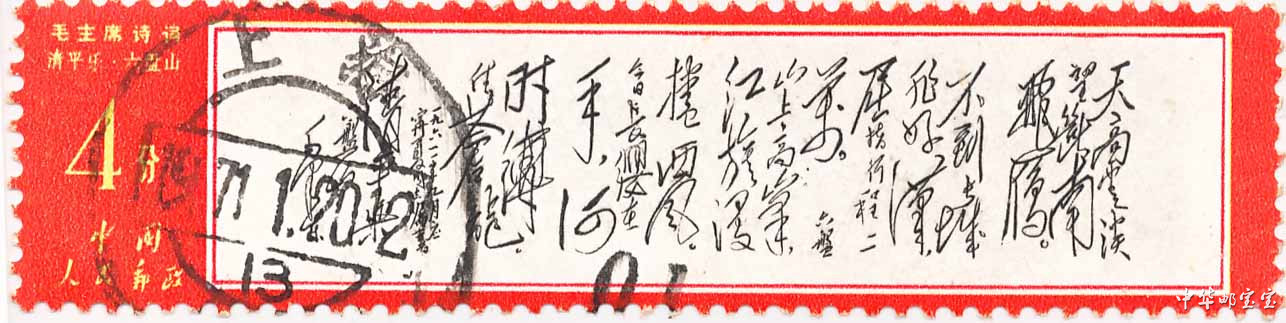 毛主席诗词
清平乐·六盘山
4分
中国
人民邮政
天高云淡
望断南
飞雁。
不到长城
非好汉,
屈指行程二
万。六盘
山上高峰,
红旗漫
卷西风。
今日长缨在
手,何
时缚
住苍龙
清平乐
上海
71.1.20.12
13
中华邮宝宝